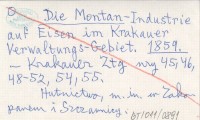 Die Montan-Industrie
auf Eisen im Krakauer
Verwaltungs-Gebiet. 1859.
— Krakauer Ztg nry 45, 46,
48-52, 54, 55.
Hutnictwo, m.in. w Zako-
panem i Szczawnicy.